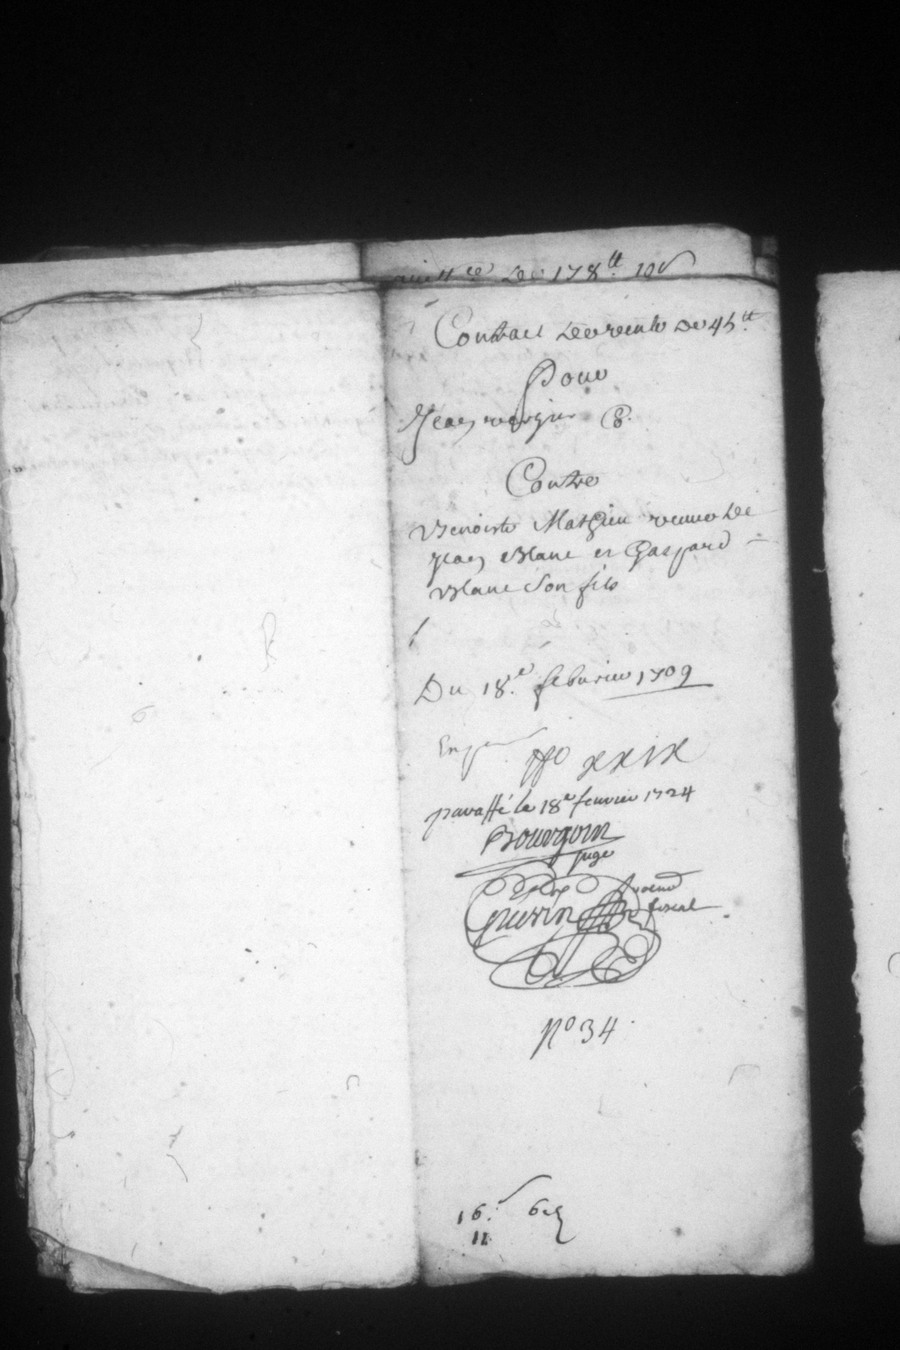 quittce de 178tt 10s
Contract de rente de 45tt
Pour
Jean vergier
Contre
Benoiste Mathieu veuve de
Jean Blanc et Gaspard
Blanc son fils
Du 18e. febvrier 1709
No XXIX
paraffé le 18e fevrier 1724
Bourgoin
juge
Guerin procur
fiscal
No 34
16.s 6d
11